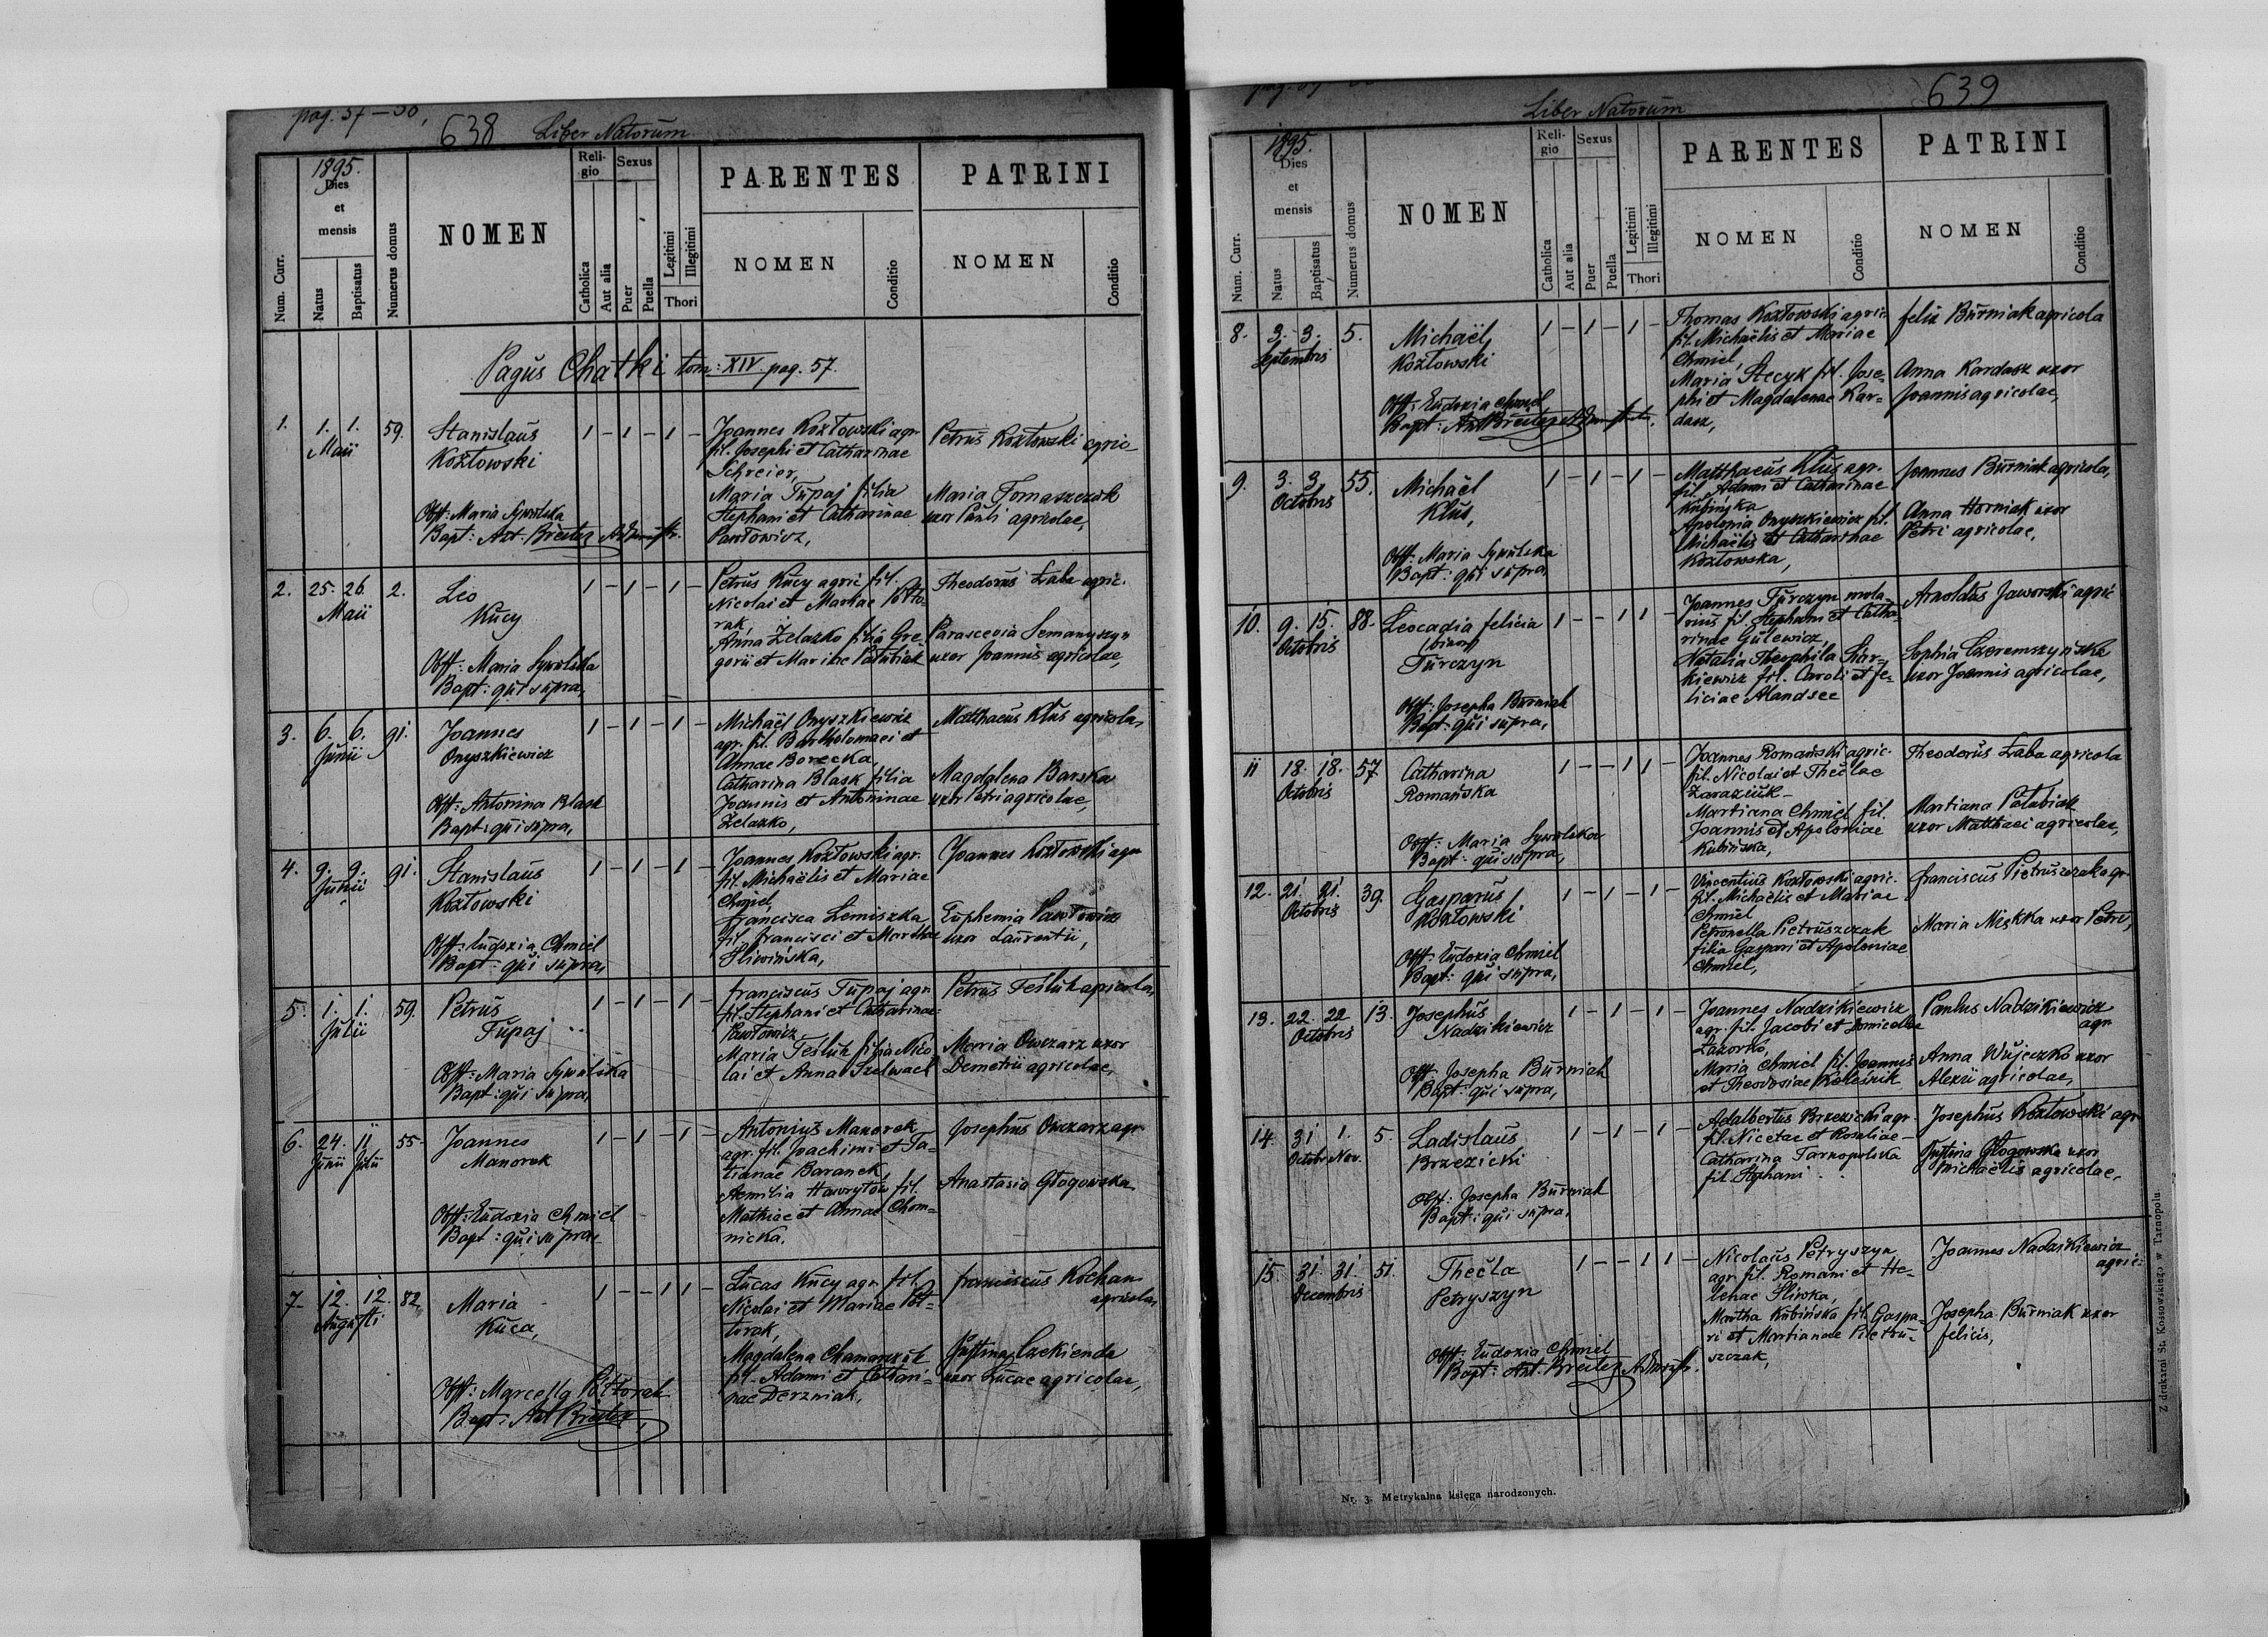 pag. 57 – 58,
638 Liber Natorum
1895.
Num. Curr.
Dies et mensis
Natus
Baptisatus
Numerus domus
NOMEN
Religio
Catholica
Aut alia
Sexus
Puer
Puella
Legitimi
Illegitimi
Thori
PARENTES
NOMEN
Conditio
PATRINI
NOMEN
Conditio
Pagus Chatki tom: XIV. pag. 57.
1. 1. 1. Maii 59.
Stanislaus
Kozłowski
Obst: Maria Sywulska
Bapt: Ant. Breitez Administr.
1 – 1 – 1 –
Joannes Kozłowski agr.
fil. Josephi et Catharinae
Schreier,
Maria Tupaj filia
Stephani et Catharinae
Pawłowicz,
Petrus Kozłowski agric
Maria Tomaszczuk
uxor Pauli agricolae,
2. 25. 26. Maii 2.
Leo
Kucy
Obst: Maria Sywulska
Bapt: qui supra,
1 – 1 – 1 –
Petrus Kucy agric fil.
Nicolai et Mariae Półto-
rak,
Anna Żelazko filia Gre-
gorii et Mariae Pałubiak
Theodorus Łaba agric.
Parascevia Semanyszyn
uxor Joannis agricolae,
3. 6. 6. Junii 91.
Joannes
Onyszkiewicz
Obst: Antonina Blask
Bapt: qui supra,
1 – 1 – 1 –
Michaël Onyszkiewicz
agr. fil. Bartholomaei et
Annae Borecka,
Catharina Blask filia
Joannis et Antoninae
Żelazko,
Matthaeus Klus agricola,
Magdalena Barska
uxor Petri agricolae,
4. 9. 9. Junii 91.
Stanislaus
Kozłowski
Obst: Eudoxia Chmiel
Bapt: qui supra,
1 – 1 – 1 –
Joannes Kozłowski agr.
fil. Michaëlis et Mariae
Chmiel,
Francisca Lemiszka
fil. Francisci et Marthae
Śliwińska,
Joannes Kozłowski agr
Euphemia Pawłowicz
uxor Laurentii,
5. 1. 1. Julii 59.
Petrus
Tupaj
Obst: Maria Sywulska
Bapt: qui supra,
1 – 1 – 1 –
Franciscus Tupaj agr.
fil. Stephani et Catharinae
Pawłowicz
Maria Teśluk filia Nico
lai et Anna Szelwach
Petrus Teśluk agricola,
Maria Owczarz uxor
Demetrii agricolae,
6. 24. Junii 11 Julii 55.
Joannes
Manorek
Obst: Eudoxia Chmiel
Bapt: qui supra,
1 – 1 – 1 –
Antonius Manorek
agr. fil. Joachimi et Ta-
tianae Baranek,
Aemilia Hawryłów fil.
Mathiae et Annae Chom-
nicka.
Josephus Owczarz agr
Anastasia Głogowska
7. 12. 12. Augusti 82.
Maria
Kuca,
Obst: Marcella Półtorak
Bapt: Ant Breitez,
1 – – 1 1 –
Lucas Kucy agr. fil.
Nicolai et Mariae Pół-
torak,
Magdalena Chamarczuk
fil. Adami et Cathari-
nae Derzniak,
Franciscus Kochan
agricola,
Justina Czekienda
uxor Lucae agricolae,
639
Liber Natorum
1895.
Num. Curr.
Dies et mensis
Natus
Baptisatus
Numerus domus
NOMEN
Religio
Catholica
Aut alia
Sexus
Puer
Puella
Legitimi
Illegitimi
Thori
PARENTES
NOMEN
Conditio
PATRINI
NOMEN
Conditio
8. 3. 3. Septembris 5.
Michaël
Kozłowski
Obst: Eudoxia Chmiel
Bapt: Ant Breitez Administr.
1 – 1 – 1 –
Thomas Kozłowski agric
fil. Michaëlis et Mariae
Chmiel
Maria Stecyk fil. Jose-
phi et Magdalenae Kar-
dasz,
Felix Burniak agricola
Anna Kardasz uxor
Joannis agricolae,
9. 3. 3. Octobris 55.
Michaël
Klus,
Obst: Maria Sywulska
Bapt: qui supra,
1 – 1 – 1 –
Matthaeus Klus agr.
fil. Adami et Catharinae
Kubińska
Apolonia Onyszkiewicz fil.
Michaëlis et Catharinae
Kozłowska,
Joannes Burniak agricola,
Anna Horniak uxor
Petri agricolae,
10. 9. 15. Octobris 88.
Leocadia Felicia
(binom)
Turczyn
Obst: Josepha Burniak
Bapt: qui supra,
1 – – 1 1 –
Joannes Turczyn mola-
rius fil. Stephani et Catha-
rinae Gulewicz,
Natalia Theophila Siar-
kiewicz fil. Caroli et Fe-
liciae Alandsee
Arnoldus Jaworski agric
Sophia Czeremszyńska
uxor Joannis agricolae,
11 18. 18. Octobris 57
Catharina
Romańska
Obst: Maria Sywulska
Bapt: qui supra,
1 – – 1 1 –
Joannes Romański agric.
fil. Nicolai et Theclae
Zaraziuk –
Martiana Chmiel fil.
Joannis et Apoloniae
Kubińska,
Theodorus Łaba agricola
Martiana Pałubiak
uxor Matthaei agricolae,
12. 21. 21. Octobris 39.
Gasparus
Kozłowski
Obst: Eudoxia Chmiel
Bapt: qui supra,
1 – 1 – 1 –
Vincentius Kozłowski agric.
fil. Michaëlis et Mariae
Chmiel
Petronella Pietruszczak
filia Gaspari et Apoloniae
Chmiel,
Franciscus Pietruszczak agr
Maria Miśkka uxor Petri,
13. 22. 22 Octobris 13.
Josephus
Nadzikiewicz
Obst: Josepha Burniak
Bapt: qui supra,
1 – 1 – 1 –
Joannes Nadzikiewicz
agr. fil. Jacobi et Domicellae
Łazorko,
Maria Chmiel fil. Joannis
et Theodosiae Koleśnik
Paulus Nadzikiewicz
agr
Anna Wujeczko uxor
Alexii agricolae,
14. 31 Octobr. 1. Nov. 5.
Ladislaus
Brzezicki
Obst: Josepha Burniak
Bapt: qui supra,
1 – 1 – 1 –
Adalbertus Brzezicki agr.
fil. Nicetae et Rosaliae –
Catharina Tarnopolska
fil. Stephani
Josephus Kozłowski agr
Justina Głogowska uxor
Michaëlis agricolae,
15. 31. 31. Decembris 51.
Thecla
Petryszyn
Obst: Eudoxia Chmiel
Bapt: Ant. Breitez Administr.
1 – – 1 1 –
Nicolaus Petryszyn
agr. fil. Romani et He-
lenae Śliwka,
Martha Kubińska fil. Gaspa-
ri et Martianae Pietru-
szczak,
Joannes Nadzikiewicz
agric.
Josepha Burniak uxor
Felicis,
Nr. 3. Metrykalna księga narodzonych.
Z drukarni St. Kossowskiego w Tarnopolu.